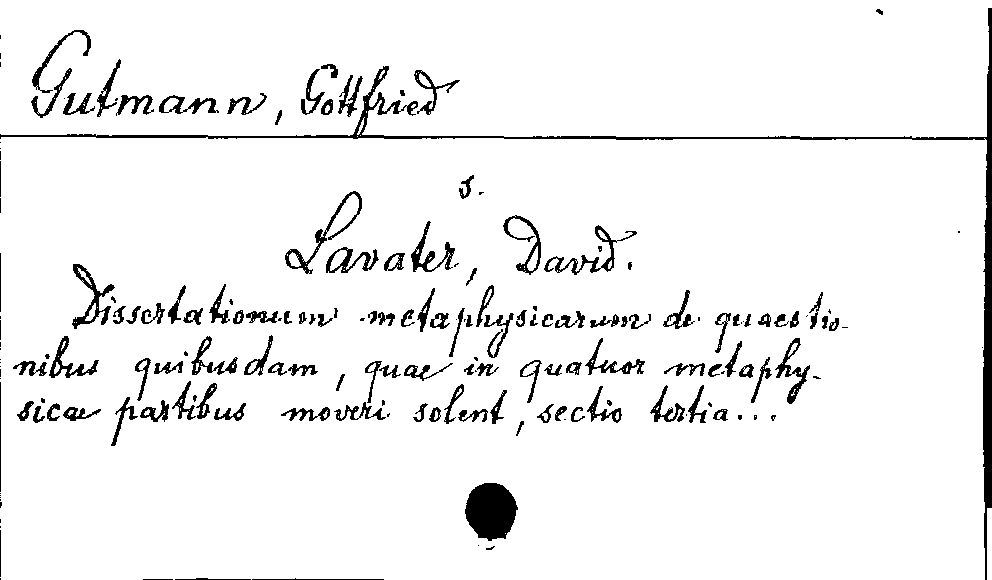 Gutmann, Gottfried
s.
Lavater, David.
Dissertationum metaphysicarum de quaestio-
nibus quibusdam, quae in quatuor metaphy-
sicae partibus moveri solent, sectio tertia...